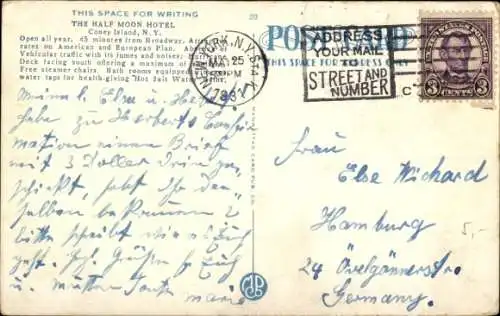 THIS SPACE FOR WRITING
THE HALF MOON HOTEL
Coney Island, N. Y.
Open all year, 45 minutes from Broadway.
rates on American and European Plan.
Vehicular traffic with its fumes and noises;
Deck facing south offering a maximum of
Free steamer chairs. Bath rooms equipped
water taps for health giving "Hot Salt Water
20
NEW YORK, N.Y. STA.
MAY 25
PM
1937
POST CARD
THIS SPACE FOR ADDRESS ONLY
ADDRESS
YOUR MAIL
TO
STREET AND
NUMBER
3 CENTS 3
Meine l. Else u. Hans
habe zu Herberts Confir
mation einen Brief
mit 3 Dollar drin ge-
schickt, habt Ihr den-
selben bekommen?
bitte schreibt wie es Euch
geht. Hzl. Grüße an Euch
u. Mutter Tante
Marie
Frau
Else Wichard
Hamburg
24 Övelgönnerstr.
Germany.
5,-